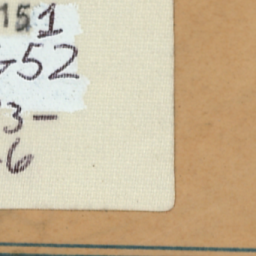 151
-52
3-
-6